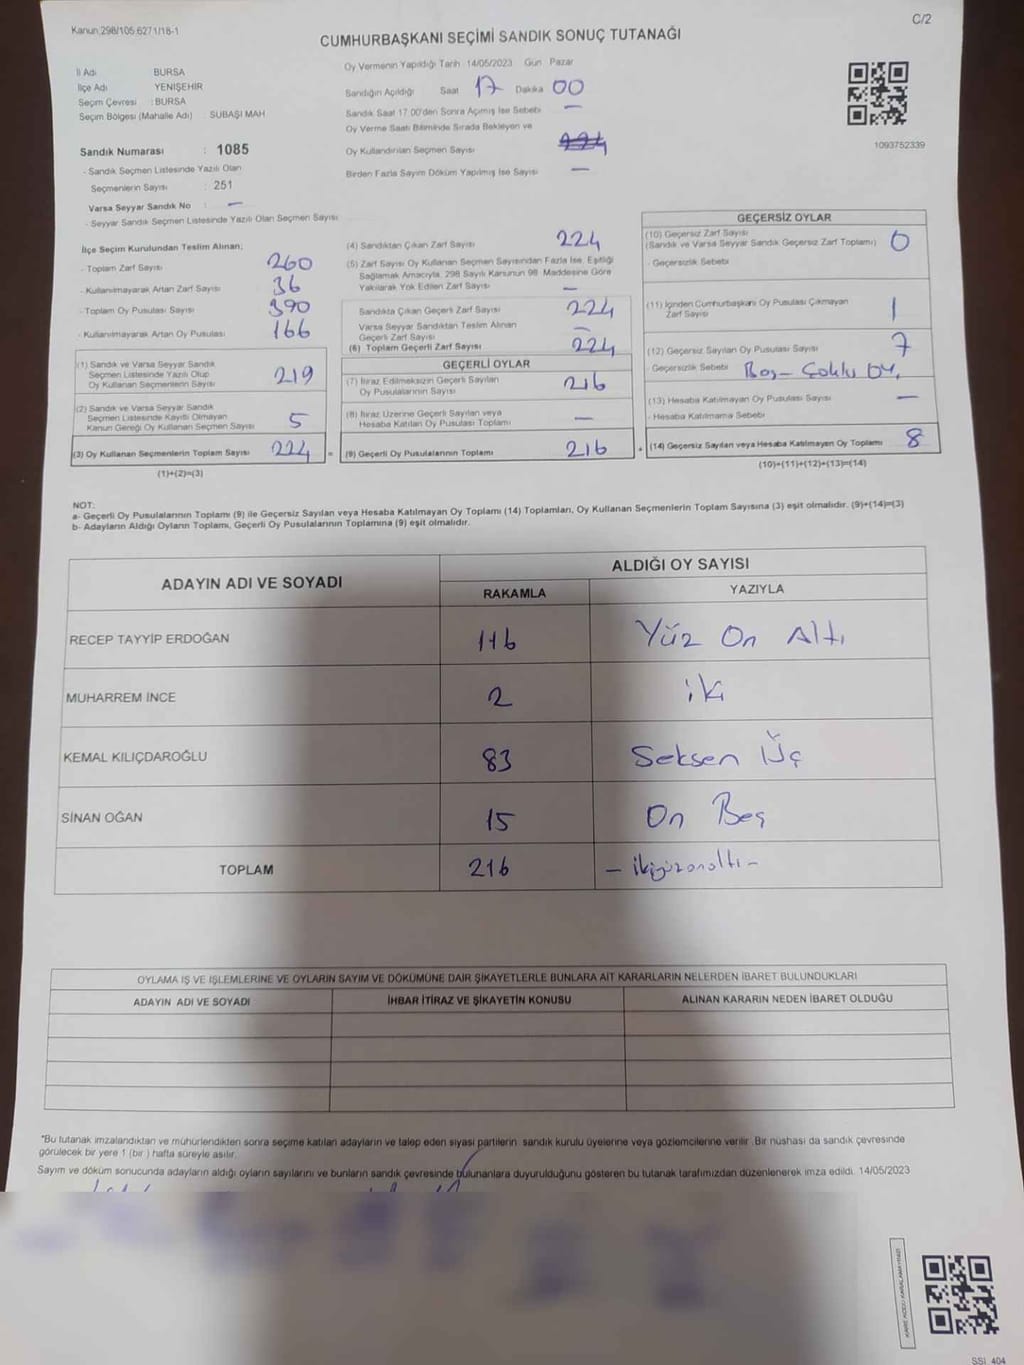 Kanun:298/105.6271/18-1
C/2
CUMHURBAŞKANI SEÇİMİ SANDIK SONUÇ TUTANAĞI
İl Adı BURSA
İlçe Adı YENİŞEHİR
Seçim Çevresi : BURSA
Seçim Bölgesi (Mahalle Adı) : SUBAŞI MAH
Sandık Numarası : 1085
- Sandık Seçmen Listesinde Yazılı Olan
Seçmenlerin Sayısı : 251
Varsa Seyyar Sandık No : —
- Seyyar Sandık Seçmen Listesinde Yazılı Olan Seçmen Sayısı
Oy Vermenin Yapıldığı Tarih 14/05/2023 Gün Pazar
Sandığın Açıldığı Saat 17 Dakika 00
Sandık Saat 17.00'den Sonra Açılmış İse Sebebi —
Oy Verme Saati Bitiminde Sırada Bekleyen ve
Oy Kullandırılan Seçmen Sayısı 224
Birden Fazla Sayım Döküm Yapılmış İse Sayısı —
1093752339
İlçe Seçim Kurulundan Teslim Alınan;
- Toplam Zarf Sayısı 260
- Kullanılmayarak Artan Zarf Sayısı 36
- Toplam Oy Pusulası Sayısı 390
- Kullanılmayarak Artan Oy Pusulası 166
(1) Sandık ve Varsa Seyyar Sandık
Seçmen Listesinde Yazılı Olup
Oy Kullanan Seçmenlerin Sayısı 219
(2) Sandık ve Varsa Seyyar Sandık
Seçmen Listesinde Kayıtlı Olmayan
Kanun Gereği Oy Kullanan Seçmen Sayısı 5
(3) Oy Kullanan Seçmenlerin Toplam Sayısı 224 =
(1)+(2)=(3)
(4) Sandıktan Çıkan Zarf Sayısı 224
(5) Zarf Sayısı Oy Kullanan Seçmen Sayısından Fazla İse, Eşitliği
Sağlamak Amacıyla, 298 Sayılı Kanunun 98. Maddesine Göre
Yakılarak Yok Edilen Zarf Sayısı —
Sandıkta Çıkan Geçerli Zarf Sayısı 224
Varsa Seyyar Sandıktan Teslim Alınan
Geçerli Zarf Sayısı —
(6) Toplam Geçerli Zarf Sayısı 224
GEÇERLİ OYLAR
(7) İtiraz Edilmeksizin Geçerli Sayılan
Oy Pusulalarının Sayısı 216
(8) İtiraz Üzerine Geçerli Sayılan veya
Hesaba Katılan Oy Pusulası Toplamı —
(9) Geçerli Oy Pusulalarının Toplamı 216 +
GEÇERSİZ OYLAR
(10) Geçersiz Zarf Sayısı
(Sandık ve Varsa Seyyar Sandık Geçersiz Zarf Toplamı) 0
- Geçersizlik Sebebi
(11) İçinden Cumhurbaşkanı Oy Pusulası Çıkmayan
Zarf Sayısı 1
(12) Geçersiz Sayılan Oy Pusulası Sayısı 7
- Geçersizlik Sebebi Boş - Çoklu oy.
(13) Hesaba Katılmayan Oy Pusulası Sayısı —
- Hesaba Katılmama Sebebi
(14) Geçersiz Sayılan veya Hesaba Katılmayan Oy Toplamı 8
(10)+(11)+(12)+(13)=(14)
NOT:
a- Geçerli Oy Pusulalarının Toplamı (9) ile Geçersiz Sayılan veya Hesaba Katılmayan Oy Toplamı (14) Toplamları, Oy Kullanan Seçmenlerin Toplam Sayısına (3) eşit olmalıdır. (9)+(14)=(3)
b- Adayların Aldığı Oyların Toplamı, Geçerli Oy Pusulalarının Toplamına (9) eşit olmalıdır.
ADAYIN ADI VE SOYADI ALDIĞI OY SAYISI
RAKAMLA YAZIYLA
RECEP TAYYİP ERDOĞAN 116 Yüz On Altı
MUHARREM İNCE 2 iki
KEMAL KILIÇDAROĞLU 83 Seksen Üç
SİNAN OĞAN 15 On Beş
TOPLAM 216 - ikiyüzonaltı -
OYLAMA İŞ VE İŞLEMLERİNE VE OYLARIN SAYIM VE DÖKÜMÜNE DAİR ŞİKAYETLERLE BUNLARA AİT KARARLARIN NELERDEN İBARET BULUNDUKLARI
ADAYIN ADI VE SOYADI İHBAR İTİRAZ VE ŞİKAYETİN KONUSU ALINAN KARARIN NEDEN İBARET OLDUĞU
*Bu tutanak imzalandıktan ve mühürlendikten sonra seçime katılan adayların ve talep eden siyasi partilerin sandık kurulu üyelerine veya gözlemcilerine verilir. Bir nüshası da sandık çevresinde
görülecek bir yere 1 (bir ) hafta süreyle asılır.
Sayım ve döküm sonucunda adayların aldığı oyların sayılarını ve bunların sandık çevresinde bulunanlara duyurulduğunu gösteren bu tutanak tarafımızdan düzenlenerek imza edildi. 14/05/2023
SSI_404